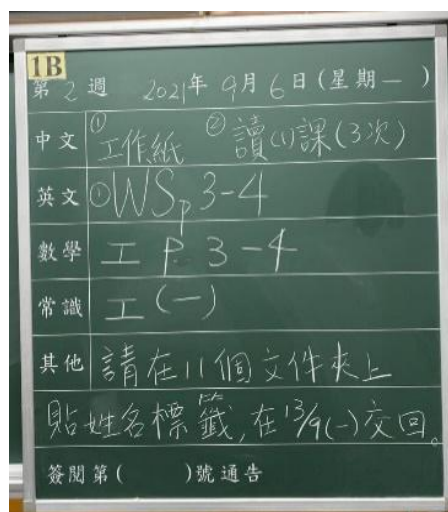 1B
第2週 2021年9月6日(星期一)
中文 ①工作紙 ②讀(1)課(3次)
英文 ①WS p 3-4
數學 工 P. 3-4
常識 工(一)
其他 請在11個文件夾上
貼姓名標籤,在13/9(一)交回。
簽閱第( )號通告